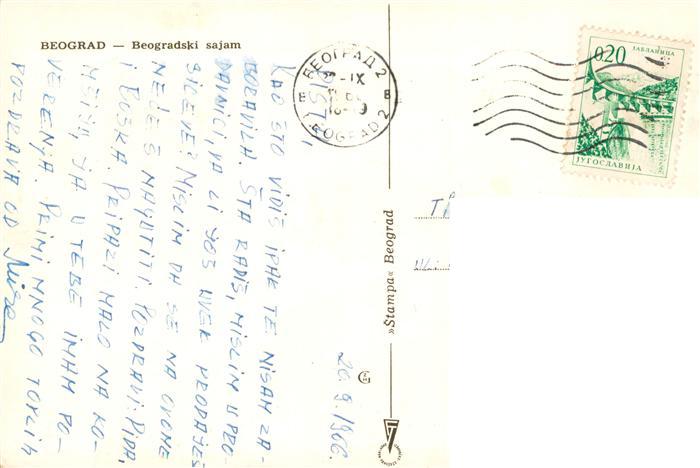 BEOGRAD — Beogradski sajam
KAO ŠTO VIDIŠ IPAK TE NISAM ZA-
BORAVILA. ŠTA RADIŠ, MISLIM U PRO-
DAVNICI, DA LI JOŠ UVEK PRODAJEŠ
MISLIM DA SE NA OVOME
NEĆEŠ NALJUTITI. POZDRAVI: PIPA,
I BOŠKA. PRIPAZI MALO NA KO-
JA U TEBE IMAM PO-
VERENJA. PRIMI MNOGO TOPLIH
POZDRAVA OD
20.9.1966.
»Štampa« Beograd
БЕОГРАД 2
IX
BEOGRAD 2
0.20
ЈАБЛАНИЦА
ЈУГОСЛАВИЈА